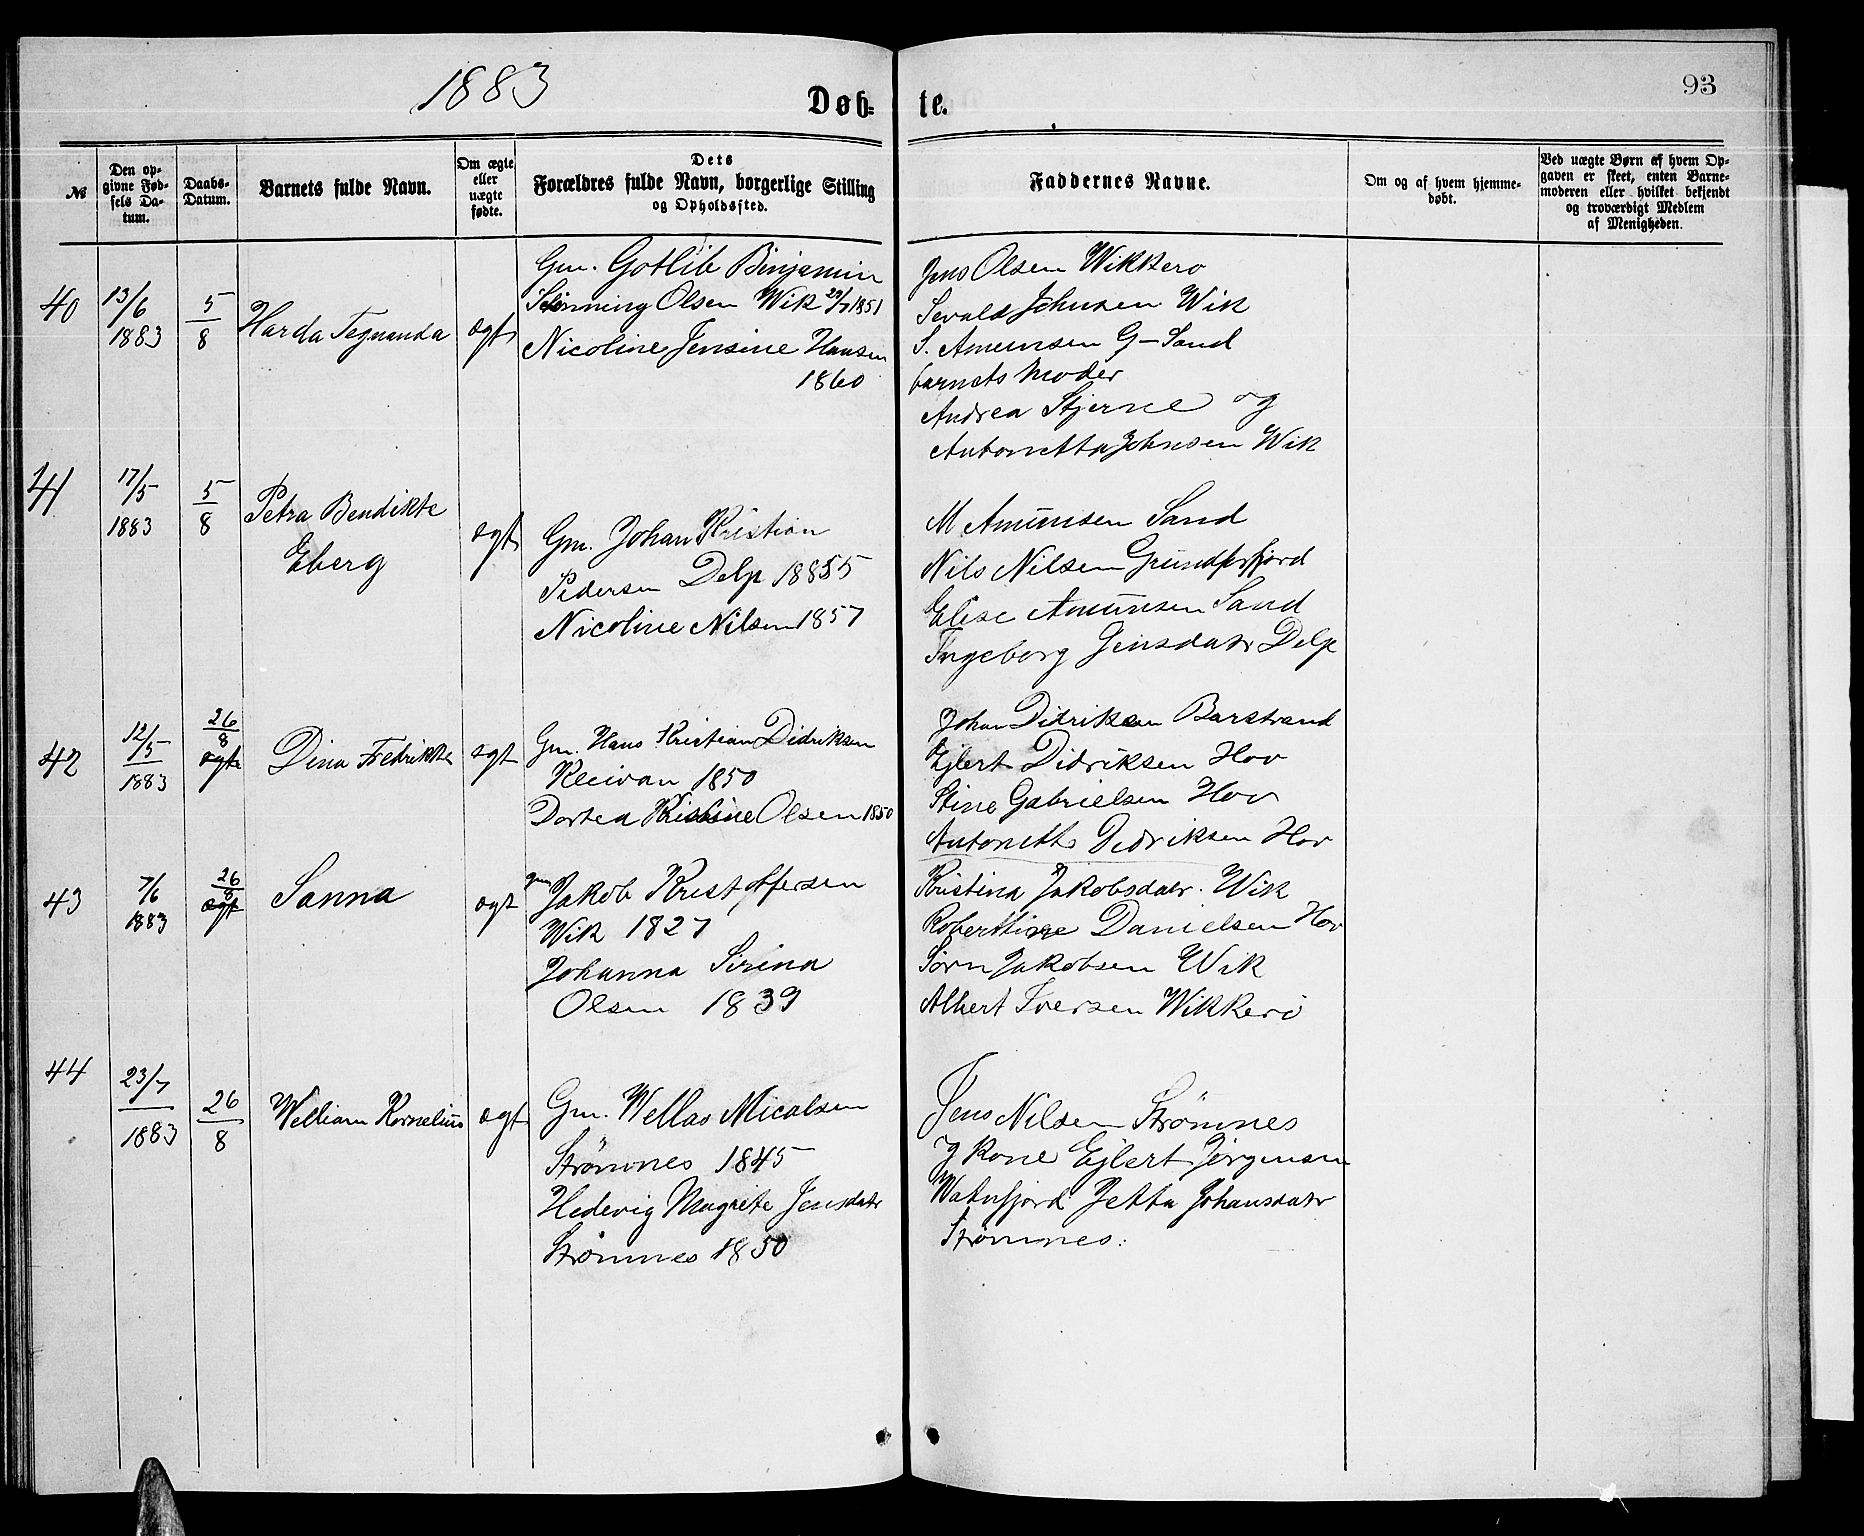 1883
Døb-
te.
93
№
Den op-
givne Fød-
sels Da-
tum.
Daabs-
Datum.
Barnets fulde Navn.
Om ægte
eller
uægte
fødte.
Dets
Forældres fulde Navn, borgerlige Stilling
og Opholdssted.
Faddernes Navne.
Om og af hvem hjemme-
døbt.
Ved uægte Børn af hvem Op-
gaven er skeet, enten Barne-
moderen eller hvilket bekjendt
og troværdigt Medlem
af Menigheden.
40
13/6
1883
5
8
Harda Tegnanda
ægt
Gm. Gotlib Binjamin
Stønning Olsen Wik 29/7 1851
Nicoline Jensine Hansen
1860
Jens Olsen Wikkerø
Sevald Johnsen Wik
S. Amunsen G-Sand
barnets Moder
Andrea Stjerne og
Antonetta Johnsen Wik
41
17/5
1883
5
8
Petra Bendikte
Eberg
ægt
Gm. Johan Kristian
Pedersen Delp 18855
Nicoline Nilsen 1857
M Amunsen Sand
Nils Nilsen Grundforfjord
Elise Amunsen Sand
Ingeborg Jensdatr Delp
42
12/5
1883
26
8
ægte
Dina Fredrikke
ægt
Gm. Hans Kristian Didriksen
Kleivan 1850
Dortea Kristine Olsen 1850
Johan Didriksen Barstrand
Ejlert Didriksen Hov
Stine Gabrielsen Hov
Antonette Didriksen Hov
43
7/6
1883
26
8
ægt
Sanna
ægt
gm Jakob Kristoffersen
Wik 1827
Johanna Sirina
Olsen 1839
Kristina Jakobsdatr. Wik
Roberttine Danielsen Hov
Sørn Jakobsen Wik
Albert Iversen Wikkerø
44
23/7
1883
26
8
Welliam Kornelius
ægt
Gm. Wellas Micalsen
Strømnes 1845
Hedevig Magrete Jensdatr
Strømnes 1850
Jens Nilsen Strømnes
og Kone Ejlert Jørgensen
Waterfjord Jetta Johansdatr
Strømnes.